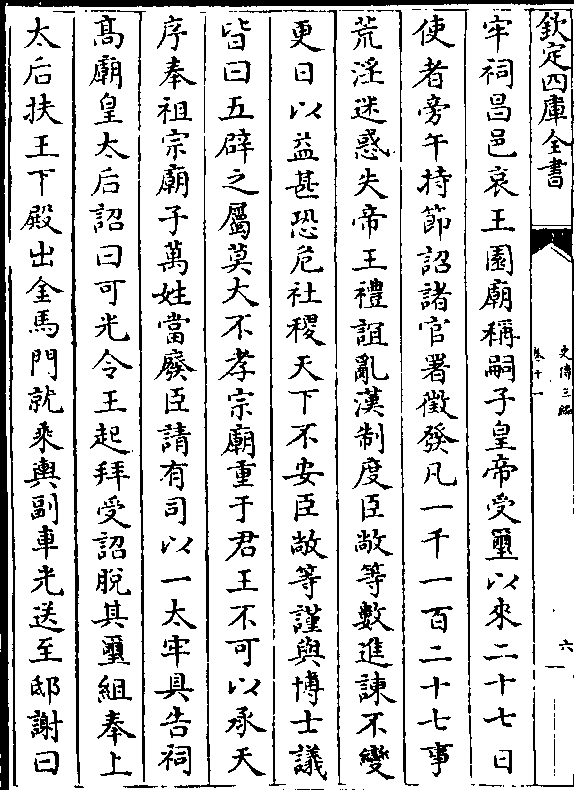 欽定四庫全書
史傳三編
卷十一
六
牢祠昌邑哀王園廟稱嗣子皇帝受璽以來二十七日
使者旁午持節詔諸官署徵發凡一千一百二十七事
荒淫迷惑失帝王禮誼亂漢制度臣敞等數進諫不變
更日以益甚恐危社稷天下不安臣敞等謹與博士議
皆曰五辟之屬莫大不孝宗廟重于君王不可以承天
序奉祖宗廟子萬姓當廢臣請有司以一太牢具告祠
髙廟皇太后詔曰可光令王起拜受詔脫其璽組奉上
太后扶王下殿出金馬門就乘輿副車光送至邸謝曰